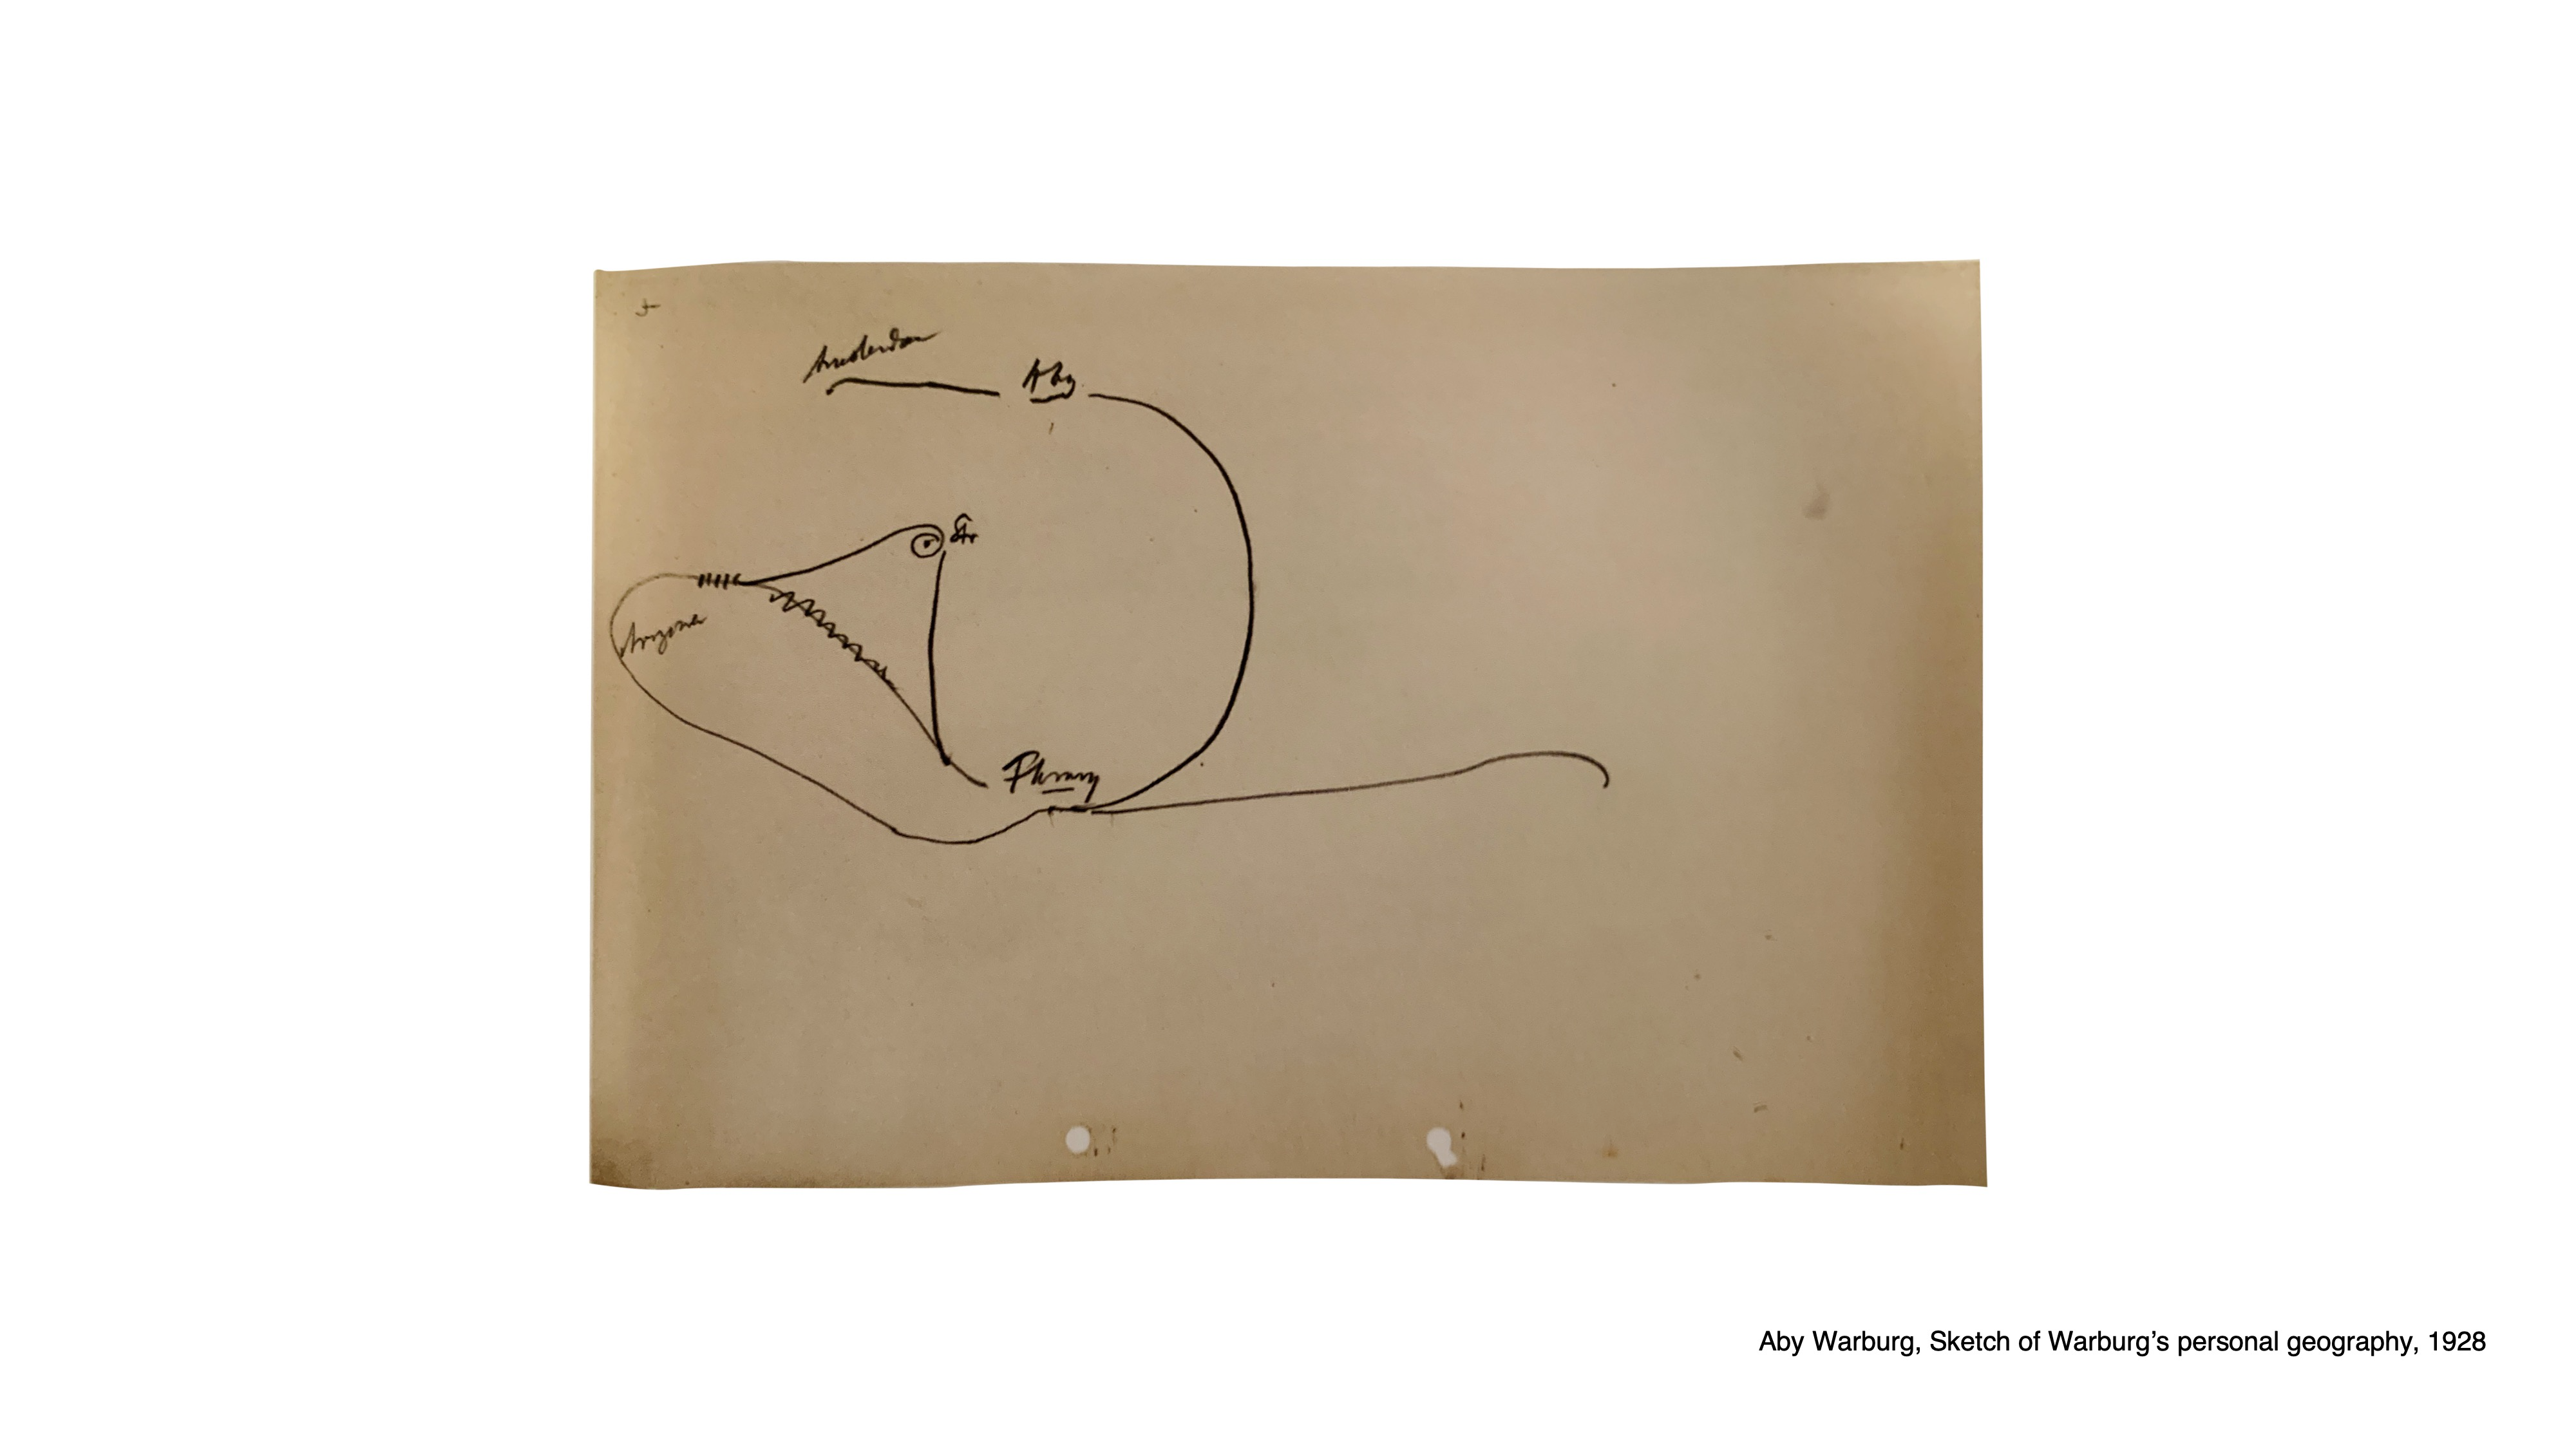 Amsterdam
Hbg
Str
Arizona
Florenz
Aby Warburg, Sketch of Warburg’s personal geography, 1928